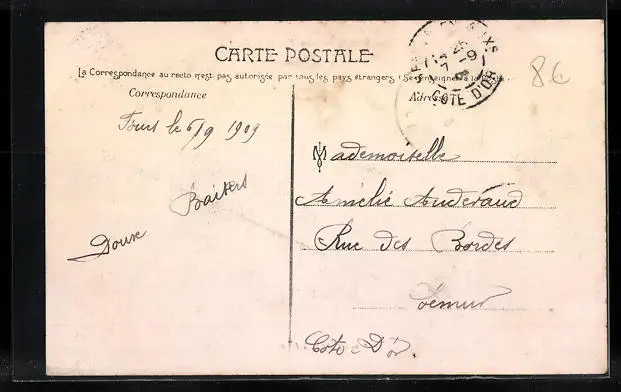 CARTE POSTALE
La Correspondance au recto n'est pas autorisée par tous les pays étrangers (Se renseigner à la
Correspondance
Adresse
Tours le 6/9 1909
Baisers
Doux
Mademoiselle
Amélie Auderaud
Rue des Bordes
Semur
Côte-D'or
COTE D'OR
7-9
86